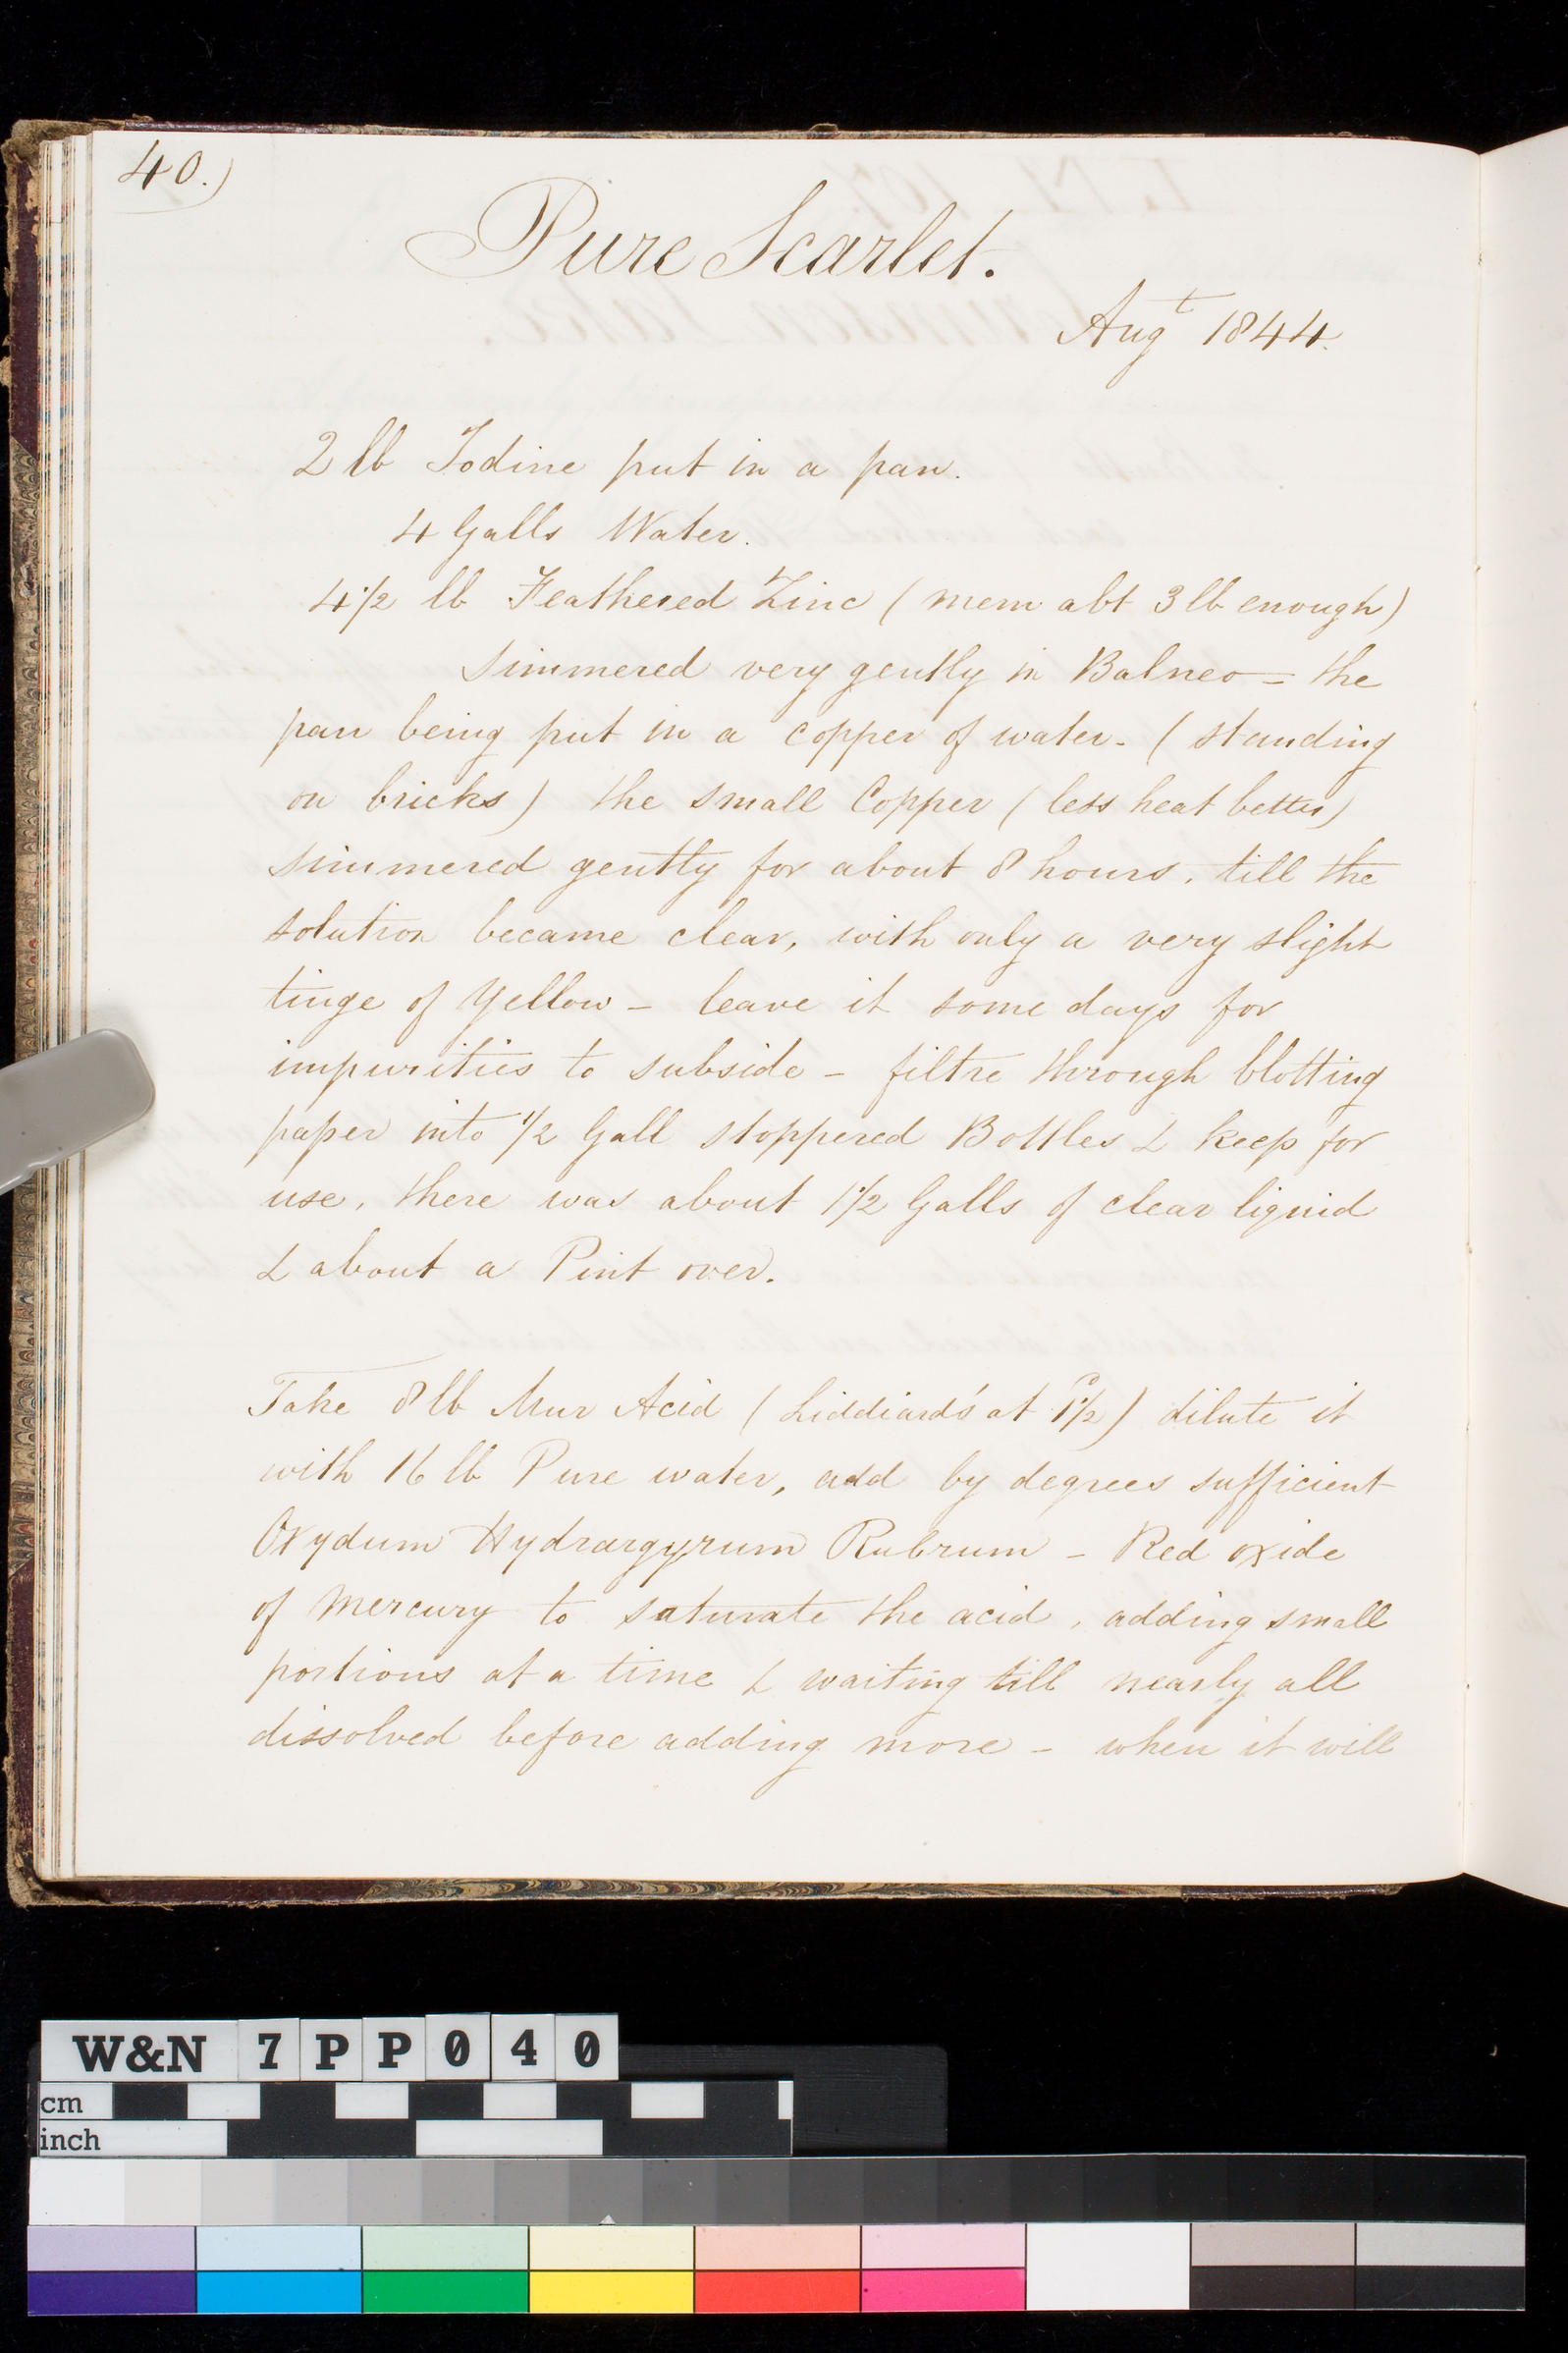 40.)
Pure Scarlet.
Augt 1844.
2 lb Iodine put in a pan.
4 Galls Water.
4 1/2 lb Feathered Zinc ( mem abt 3 lb enough)
simmered very gently in Balneo = the
pan being put in a copper of water - ( standing
on bricks) the small Copper ( less heat better)
simmered gently for about 8 hours, till the
solution became clear, with only a very slight
tinge of Yellow - leave it some days for
impurities to subside - filtre through blotting
paper into 1/2 Gall stoppered Bottles & keep for
use, there was about 1 1/2 Galls of clear liquid
& about a Pint over.
Take 8 lb Mur Acid ( Liddiard's at 1 1/2 ) dilute it
with 16 lb Pure water, add by degrees sufficient
Oxydum Hydrargyrum Rubrum - Red oxide
of Mercury to saturate the acid, adding small
portions at a time & waiting till nearly all
dissolved before adding more - when it will
W&N 7PP040
cm
inch